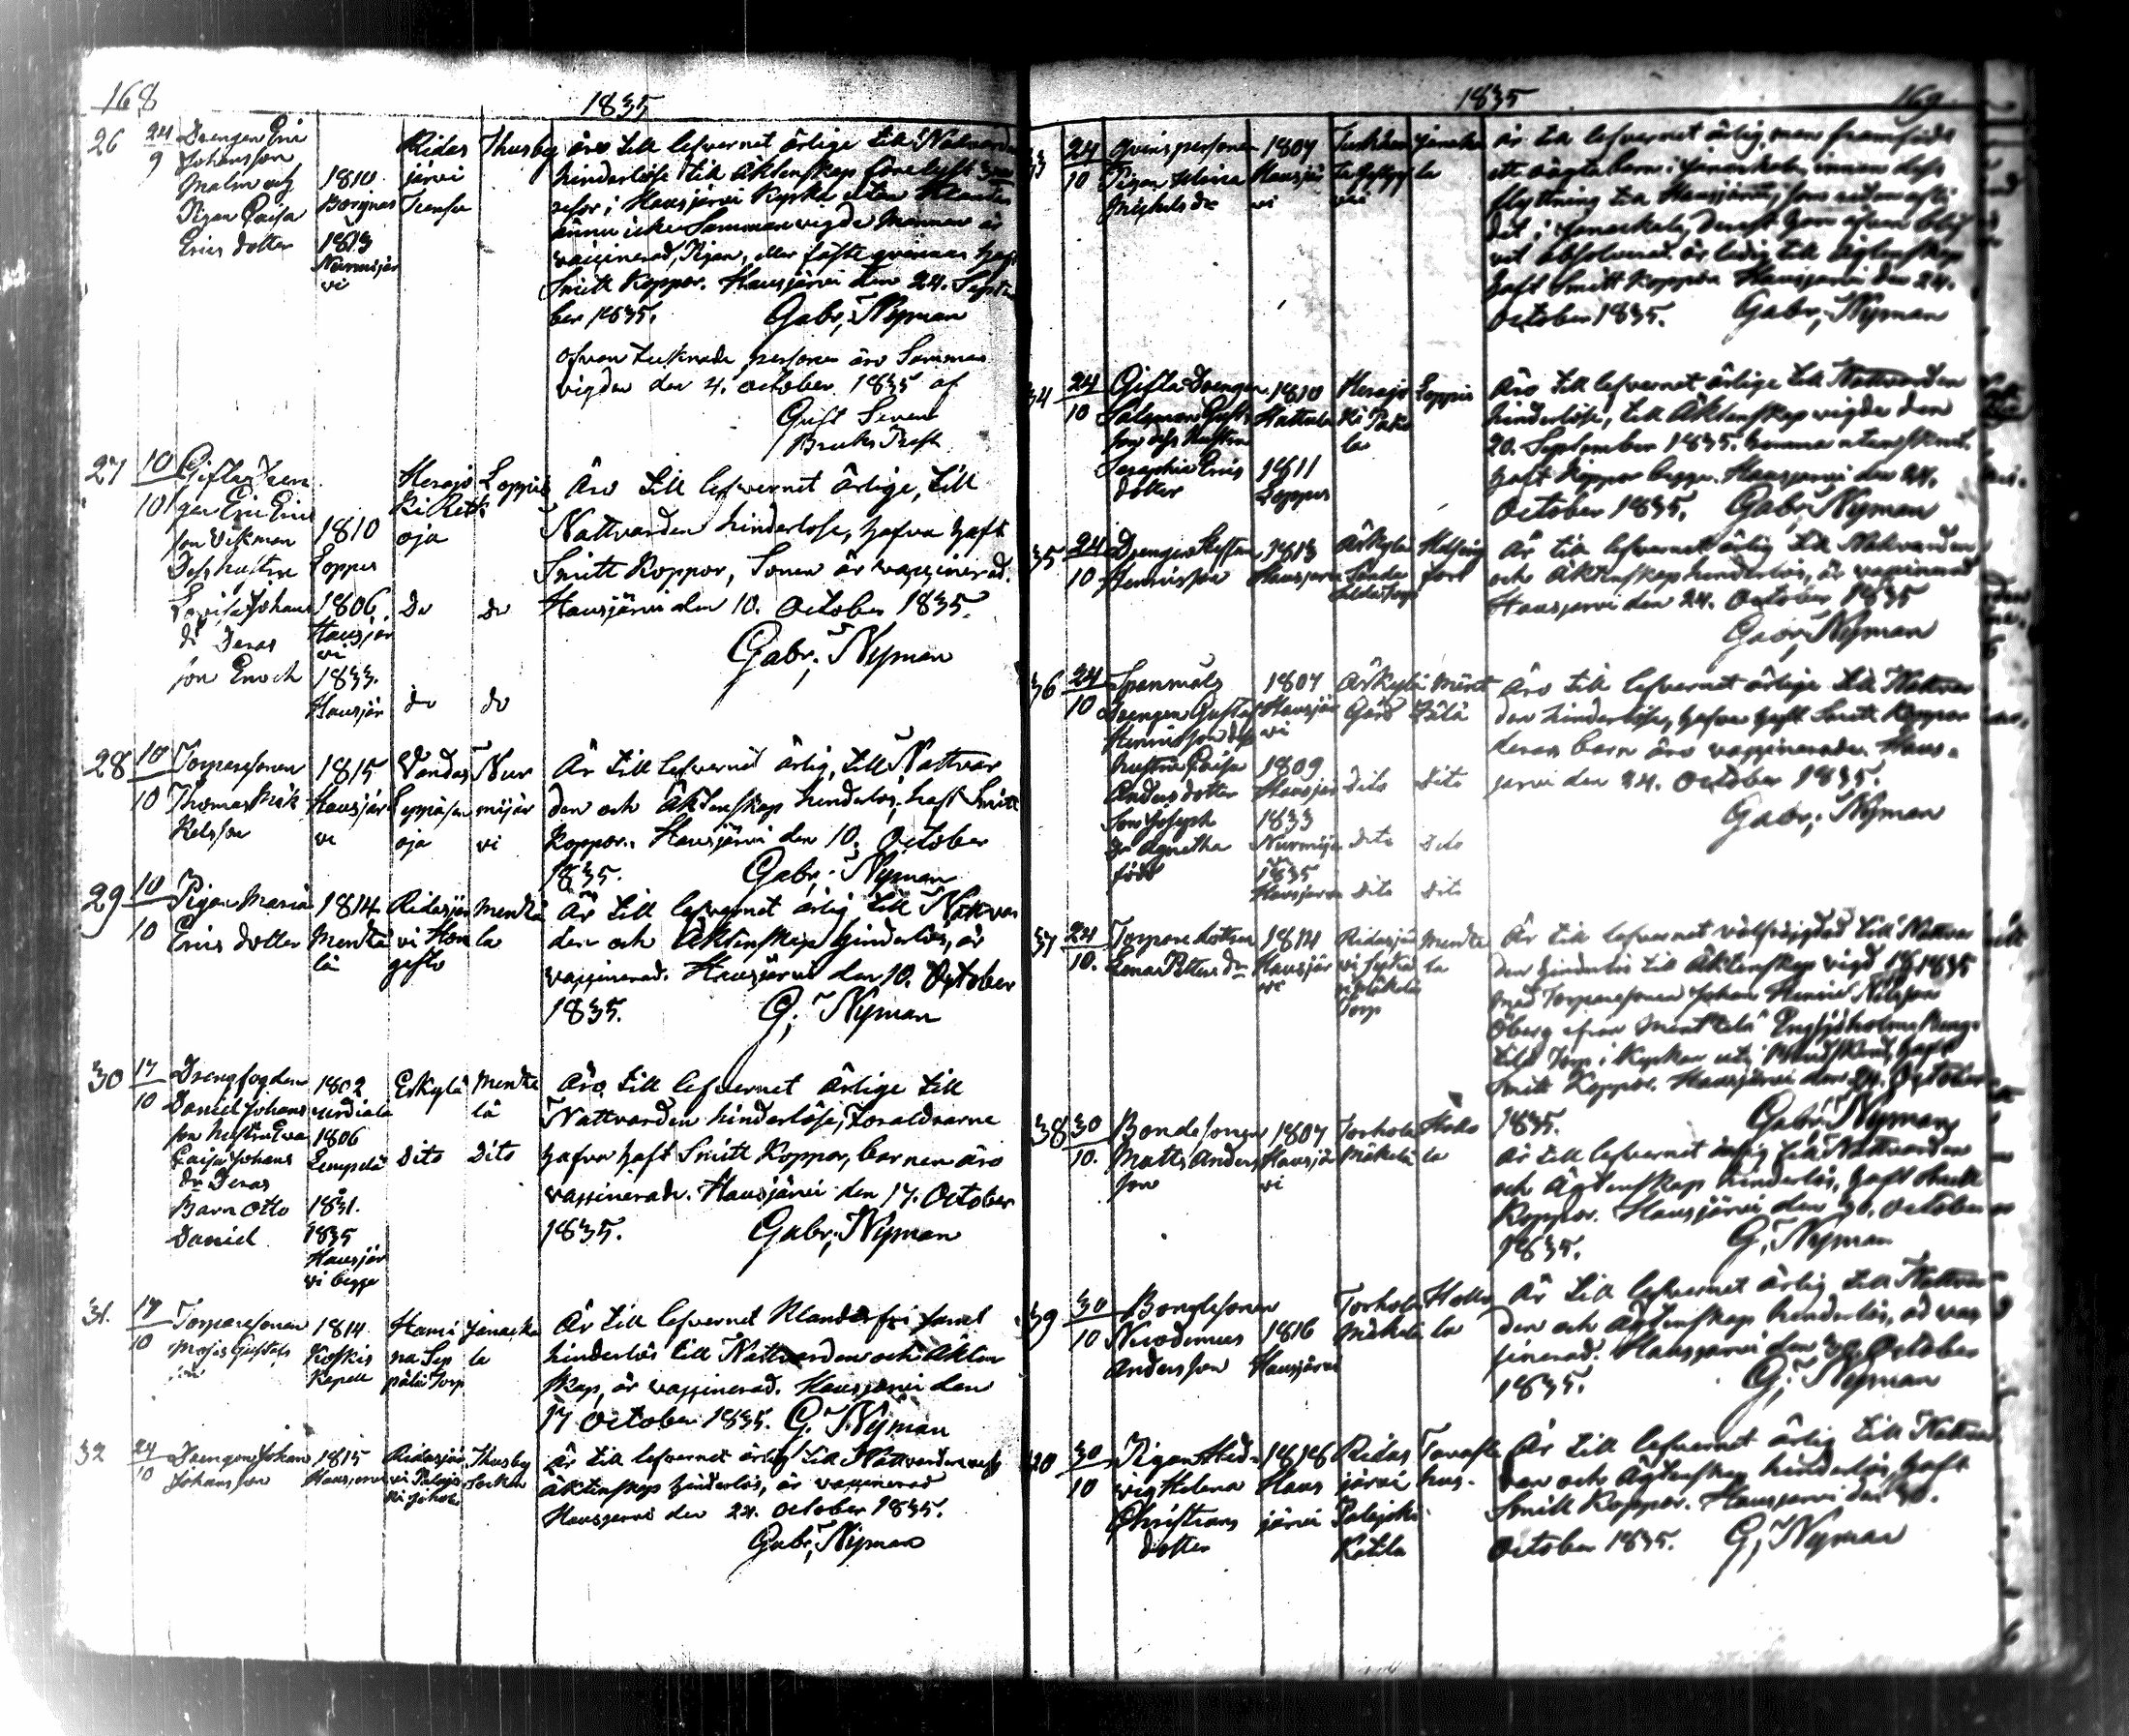 168
1835
26 24/9 Drengen Eric
Johansson
Malm och
Pigan Caisa
Erics dotter
1810
Borgnäs
1813
Nurmijär
vi
Ridas
järvi
Thusby
äro till lefvernet ärlige till Nattvarden
hinderlöse till Äktenskap förelyst 3ne
resor i Hausjärvi Kyrka utan Klander
ännu icke Sammanvigde Mannen är
vaccinerad, Pigan, eller fäste qvinnan haft
Smitt Koppor. Hausjärvi den 24. Septem
ber 1835.
Gabr. Nyman
Ofvan tecknade personer äro Samman
vigde den 4. October 1835 af
Gust
Bruks Pred.
27 10/10 Gifta Dren
gen Eric Erics
son Vikman
Dess hustru
Lovisa Johans
dr Deras
son Enoch
1810
Loppis
1806
Hausjär
vi
1833.
Hausjär
Herajo
ki Rett
oja
do
do
Loppis
do
do
Äro till lefvernet ärlige, till
Nattvarden hinderlöse, hafva haft
Smitt Koppor, Sonen är vaccinerad.
Hausjärvi den 10. October 1835.
Gabr. Nyman
28 10/10 Torparesonen
Thomas Mik
kelsson
1815
Hausjär
vi
Vandas
Leppäsen
oja
Nur
mijär
vi
Är till lefvernet ärlig, till Nattvar
den och Äktenskap hinderlös, haft Smitt
Koppor. Hausjärvi den 10. October
1835.
Gabr. Nyman
29 10/10 Pigan Maria
Erics dotter
1814
Mentzä
lä
Ridasjär
vi Hon
gisto
Mentzä
la
Är till lefvernet ärlig till Nattvar
den och Äktenskap hinderlös, är
vaccinerad. Hausjärvi den 10. October
1835.
G. Nyman
30 17/10 Drengfogden
Daniel Johans
son hustru Eva
Caisa Johans
dr Deras
Barn Otto
Daniel
1802
Urdiala
1806
Lempelä
1831.
1835
Hausjär
vi begge
Erkylä
Dito
Mentze
lä
Dito
Äro till lefvernet ärlige till
Nattvarden hinderlöse, Föräldrarne
hafva haft Smitt Koppor, barnen äro
vaccinerade. Hausjärvi den 17. October
1835.
Gabr. Nyman
31. 17/10 Torparesonen
Moses Gustafs
son
1814
Koskis
Kapell
Hami
na Sep
pälä Torp
Janacka
la
Är till lefvernet Klanderfri samt
hinderlös till Nattvarden och Äkten
skap, är vaccinerad. Hausjärvi den
17 October 1835. G. Nyman
32 24/10 Drengen Johan
Johansson
1815
Hausjärvi
Ridasjär
vi Palojo
ki
Thusby
Socken
Är till lefvernet ärlig till Nattvarden och
Äktenskap hinderlös, är vaccinerad
Hausjärvi den 24. October 1835.
Gabr. Nyman
1835
169
33 24/10 Qvinspersonen
Pigan Maria
Michels dr
1807
Hausjär
vi
Janacka
la
Är till lefvernet ärlig, men framfödt
ett oägta barn i Janackala, innan dess
flyttning till Hausjärvi,
det i Janackala, derest hon äfven blif
vit absolverad är ledig till Ägtenskap
haft Smitt Koppor Hausjärvi den 24.
October 1835.
Gabr. Nyman
34 24/10 Gifta Drengen
Salomon Gustafs
son dess Hustru
Seraphia Erics
dotter
1810
Hattula
1811
Loppis
Herajo
ki Paka
la
Loppis
Äro till lefvernet ärlige till Nattvarden
hinderlöse, till Äktenskap vigde den
20. September 1835.
haft Koppor begge. Hausjärvi den 24.
October 1835. Gabr. Nyman
35 24/10 Drengen Staffan
Henricsson
1813
Hausjärvi
Helsing
fors
Är till lefvernet ärlig till Nattvarden
och Äktenskap hinderlös, är vaccinerad
Hausjärvi den 24. October 1835
Gabr. Nyman
36 24/10 Spannmåls
Drengen Gustaf
Henricsson dess
hustru Caisa
Anders dotter
Son Joseph
Dr Agnetha
född
1807
Hausjär
vi
1809
Hausjär
1833
Nurmijär
1835
Hausjärvi
Ärkylä
Gård
Dito
Dito
Dito
Mänt
zälä
Dito
Dito
Dito
Äro till lefvernet ärlige till Nattvar
den hinderlöse, hafva haft Smitt Koppor
deras barn äro vaccinerade. Haus=
järvi den 24. October 1835.
Gabr. Nyman
37 24/10. Torpare dottren
Lena Petters dr
1814
Hausjär
vi
Ridasjär
vi
Mäkelä
Torp
Mentze
la
Är till lefvernet välfrägdad till Nattvar
den hinderlös till Äktenskap vigd 1835
med Torparesonen Johan Henric Nilsson
Öberg ifrån Mentzelä
Torp i Kyrkan haft
Smitt Koppor. Hausjärvi den 24. October
1835.
Gabr. Nyman
38 30/10. Bondesonen
Matts Anders
son
1807
Hausjär
vi
Torhola
Mäkelä
Hollo
la
Är till lefvernet ärlig till Nattvarden
och Ägtenskap hinderlös, haft Smitt
Koppor. Hausjärvi den 30. October
1835.
G. Nyman
39 30/10 Bondesonen
Nicodemus
Andersson
1816
Hausjärvi
Torhola
Mäkelä
Hollo
la
Är till lefvernet ärlig till Nattvar
den och Ägtenskap hinderlös, är vac
cinerad. Hausjärvi den 30. October
1835.
G. Nyman
40 30/10 Pigan Hed=
vig Helena
Christians
dotter
1818
Haus
järvi
Ridas
järvi
Palojoki
Kottla
Tavaste
hus.
Är till lefvernet ärlig till Nattvar
den och Ägtenskap hinderlös, haft
Smitt Koppor. Hausjärvi den 30.
October 1835. G. Nyman